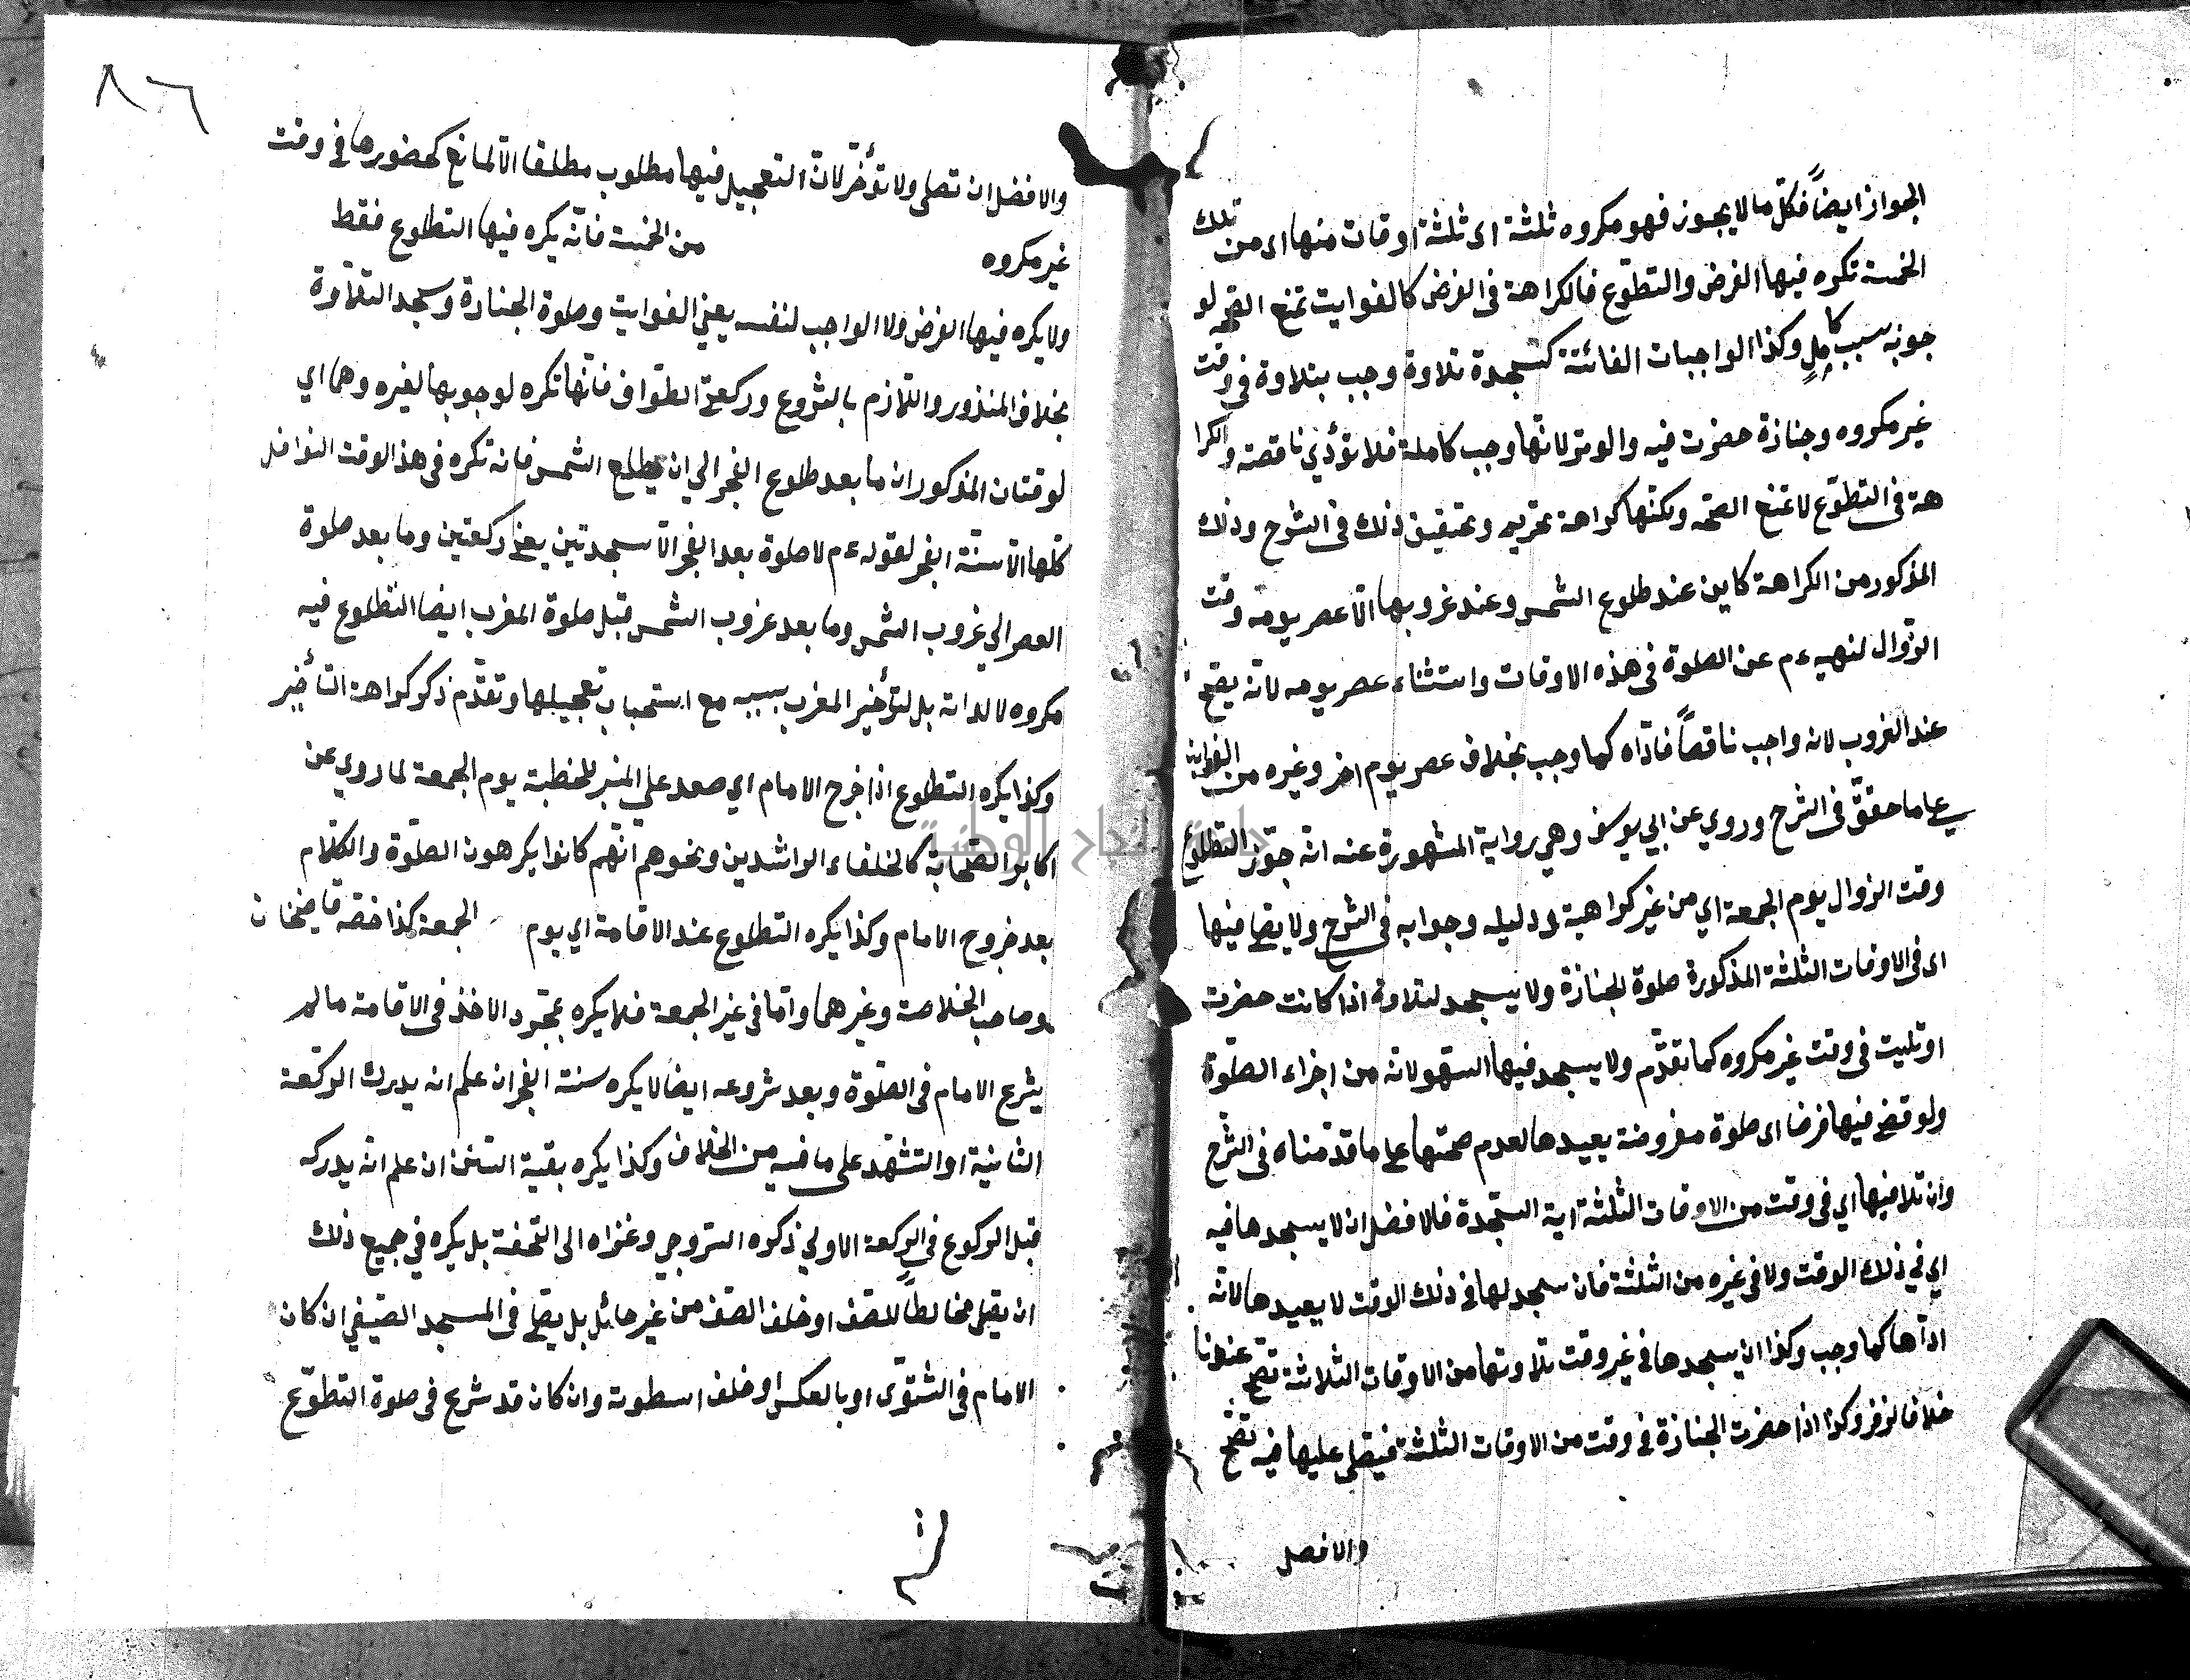 الجواز ايضاً فكل ما لا يجوز فهو مكروه ثلثة اى ثلثة اوقات منها اى من تلك
الخمسة تكره فيها الفرض والتطوّع فالكراهة فى الفرض كالفوايت تمنع الصحة لو
جوبه بسبب كامِلٍ وكذا الواجبات الفائتة كسجدة تلاوة وجب بتلاوة فى وقت
غير مكروه وجنازة حضرت فيه والوتر لانها وجب كاملة فلا تؤدي ناقصة والكرا
هة فى التطوّع لا تمنع الصحة ولكنّها كراهة تحريم وتحقيق ذلك فى الشرح وذلك
المذكور من الكراهة كاين عند طلوع الشمس وعند غروبها الّا عصر يومه وقت
الزّوال لنهيه ءم عن الصلوة فى هذه الاوقات واستثناء عصر يومه لانّه يصّح
عند الغروب لانه واجب ناقصاً فادّاه كما وجب بخلاف عصر يوم اخر وغيره من الفوايت
على ما حقّق فى الشرح وروي عن ابي يوسف وهي رواية المشهورة عنه انّه جوّز التطوّع
وقت الزوال يوم الجمعة اي من غير كراهية ودليله وجوابه فى الشرح ولا يصلى فيها
اى فى الاوقات الثلثة المذكورة صلوة الجنازة ولا يسجد لتلاوة اذا كانت حضرت
او تليت فى وقت غير مكروه كما تقدّم ولا يسجد فيها السّهو لانّه من اجزاء الصّلوة
ولو قضى فيها فرضا اى صلوة مفروضة يعيدها لعدم صحتها على ما قدّمناه فى الشرح
وان تلا فيها اي فى وقت من الاوقات الثلثة اية السّجدة فالافضل ان لا يسجدها فيه
اي في ذلك الوقت ولا فى غيره من الثلثة فان سجد لها فى ذلك الوقت لا يعيدها لانّه
ادّاها كما وجب وكذا ان يسجدها فى غير وقت تلاوتها من الاوقات الثلاثة تصّح عندنا
خلافا لزفر وكذا اذا حضرت الجنازة فى وقت من الاوقات الثلثة فيصّلى عليها فيه تصّح
والافضل
٨٦
والافضل ان تصلى ولا تؤخّر لانّ التعجيل فيها مطلوب مطلقا الّا لمانع كحضورها فى وقت
غير مكروه من الخمسة فانّه يكره فيها التطوع فقط
ولا يكره فيها الفرض ولا الواجب لنفسه يعني الفوايت وصلوة الجنازة وسجد التلاوة
بخلاف المنذور واللّازم بالشروع وركعتى الطوّاف فانّها تكره لوجوبها لغيره وهما اي
لوقتان المذكوران ما بعد طلوع الفجر الي ان يطلع الشمس فانه تكره فى هذ الوقت النوافل
كلّها الّا سنّة الفجر لقوله ءم لا صلوة بعد الفجر الّا سجدتين يعنى ركعتين وما بعد صلوة
العصر الي غروب الشمس وما بعد غروب الشمس قبل صلوة المغرب ايضا التطوع فيه
مكروه لا لذاته بل لتأخير المغرب بسببه مع استحباب تعجيلها وتقدّم ذكر كراهة التأخير
وكذا يكره التطوع اذا خرج الامام اي صعد علي المنبر للخطبة يوم الجمعة لما روي عن
اكابر الصّحابة كالخلفاء الراشدين ونحوهم انّهم كانوا يكرهون الصّلوة والكلام
بعد خروج الامام وكذا يكره التطوع عند الاقامة اي يوم الجمعة كذا خصّه قاضيخان
وصاحب الخلاصة وغيرهما وامّا فى غير الجمعة فلا يكره بمجّرد الاخذ فى الاقامة ما لم
يشرع الامام فى الصّلوة وبعد شروعه ايضا لا يكره سنة الفجر ان علم انه يدرك الركعة
الثانية او التشهّد على ما فيه من الخلاف وكذا يكره بقية السّنن ان علم انّه يدركه
قبل الركوع فى الركعة الاولي ذكره السّروجي وعزاه الى التّحفة بل يكره في جميع ذلك
ان يصّلى مخالطاً للصّف او خلف الصّف من غير حائل بل يصّلى فى المسجد الصّيفي ان كان
الامام فى الشتوّى او بالعكس او خلف اسطوانة وان كان قد شرع فى صلوة التطوّع
جامعة النجاح الوطنية